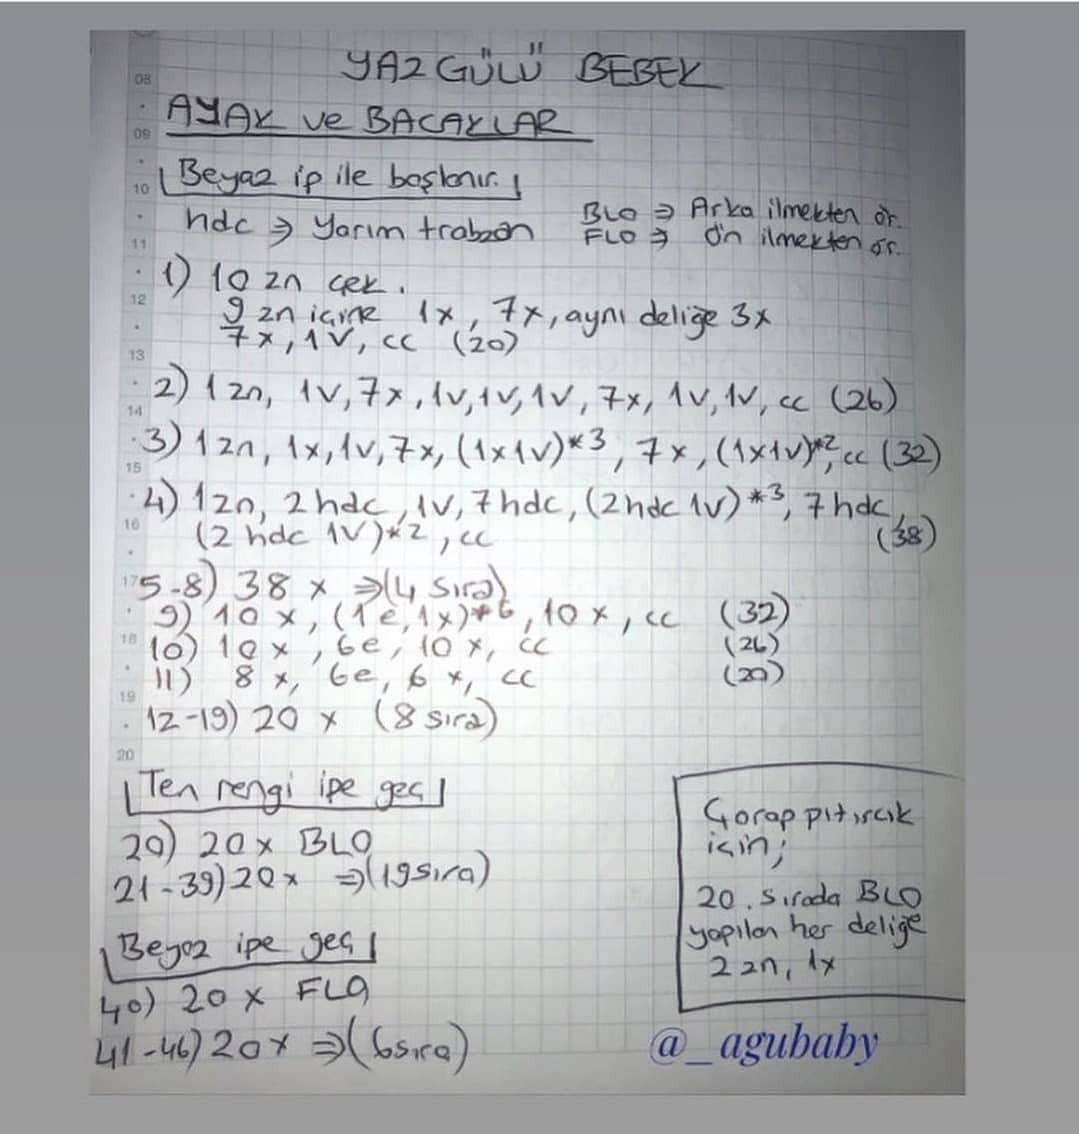 YAZ GÜLÜ BEBEK
AYAK ve BACAKLAR
Beyaz ip ile başlanır.
hdc ⇒ Yarım trabzan
BLO ⇒ Arka ilmekten ör.
FLO ⇒ Ön ilmekten ör.
1) 10 zn çek.
9 zn içine 1x, 7x, aynı deliğe 3x
7x, 1V, cc (20)
2) 1zn, 1v, 7x, 1v, 1v, 1v, 7x, 1v, 1v, cc (26)
3) 1zn, 1x, 1v, 7x, (1x1v)*3, 7x, (1x1v)*2, cc (32)
4) 1zn, 2hdc, 1v, 7hdc, (2hdc 1v)*3, 7hdc,
(2 hdc 1V)*2, cc (38)
5-8) 38 x ⇒ (4 Sıra)
9) 10 x, (1e, 1x)*6, 10 x, cc (32)
10) 10 x, 6e, 10 x, cc (26)
11) 8 x, 6e, 6 x, cc (20)
12-19) 20 x (8 sıra)
Ten rengi ipe geç
20) 20 x BLO
21-39) 20x ⇒ (19sıra)
Beyaz ipe geç
40) 20 x FLO
41-46) 20x ⇒ (6sıra)
Çorap pıtırcık
için;
20. Sırada BLO
yapılan her deliğe
2 zn, 1x
@_agubaby
08
09
10
11
12
13
14
15
16
17
18
19
20